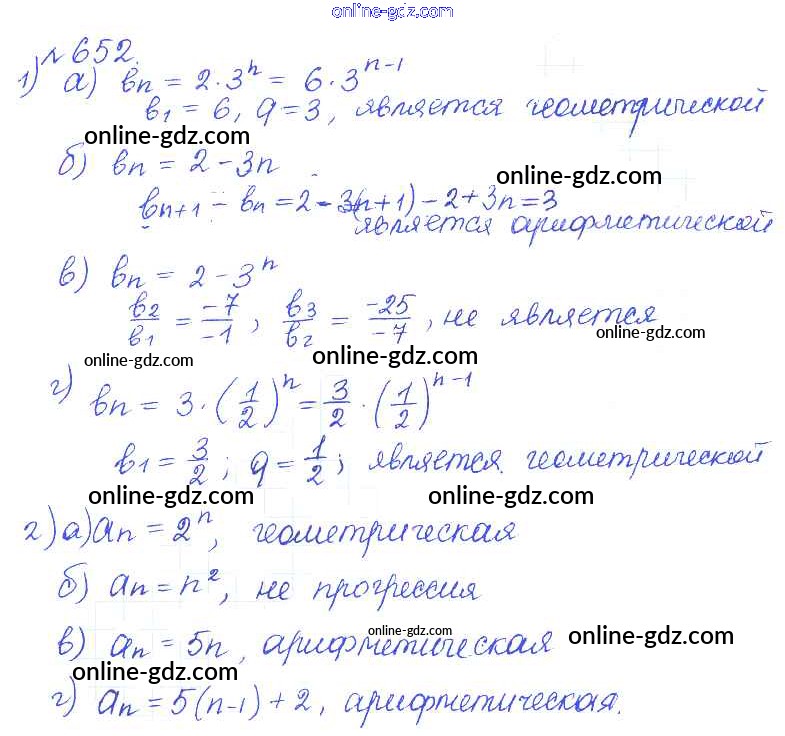 online-gdz.com
№652.
1) а) bn = 2·3^n = 6·3^(n-1)
b1 = 6, q = 3, является геометрической
online-gdz.com
б) bn = 2 - 3n
online-gdz.com
bn+1 - bn = 2 - 3(n+1) - 2 + 3n = 3
является арифметической
в) bn = 2 - 3^n
b2/b1 = -7/-1, b3/b2 = -25/-7, не является
online-gdz.com
online-gdz.com online-gdz.com
г) bn = 3·(1/2)^n = 3/2·(1/2)^(n-1)
b1 = 3/2; q = 1/2; является геометрической
online-gdz.com online-gdz.com
2) а) an = 2^n, геометрическая
б) an = n², не прогрессия
online-gdz.com online-gdz.com
в) an = 5n, арифметическая
online-gdz.com
г) an = 5(n-1) + 2, арифметическая.